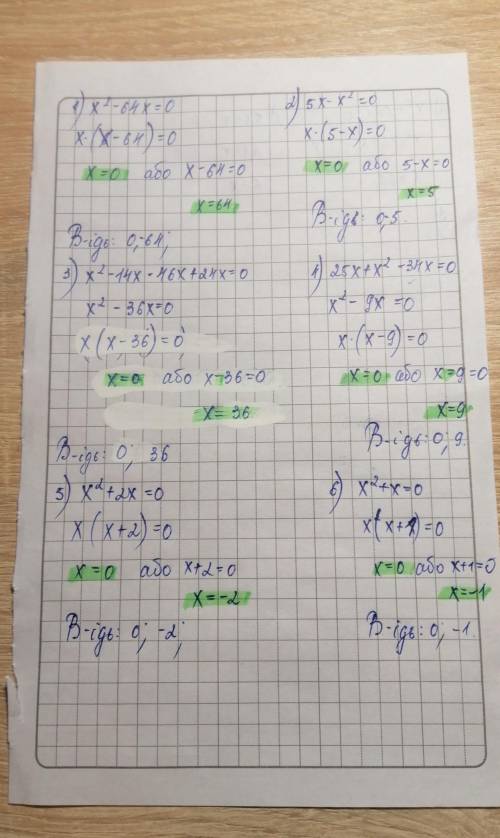 1) x² - 64x = 0
x·(x - 64) = 0
x = 0 або x - 64 = 0
x = 64
В-ідь: 0; -64;
2) 5x - x² = 0
x·(5 - x) = 0
x = 0 або 5 - x = 0
x = 5
В-ідь: 0; -5.
3) x² - 14x - 46x + 24x = 0
x² - 36x = 0
x(x - 36) = 0
x = 0 або x - 36 = 0
x = 36
В-ідь: 0; 36
4) 25x + x² - 34x = 0
x² - 9x = 0
x·(x - 9) = 0
x = 0 або x - 9 = 0
x = 9
В-ідь: 0; 9.
5) x² + 2x = 0
x(x + 2) = 0
x = 0 або x + 2 = 0
x = -2
В-ідь: 0; -2;
6) x² + x = 0
x(x + 1) = 0
x = 0 або x + 1 = 0
x = -1
В-ідь: 0; -1.